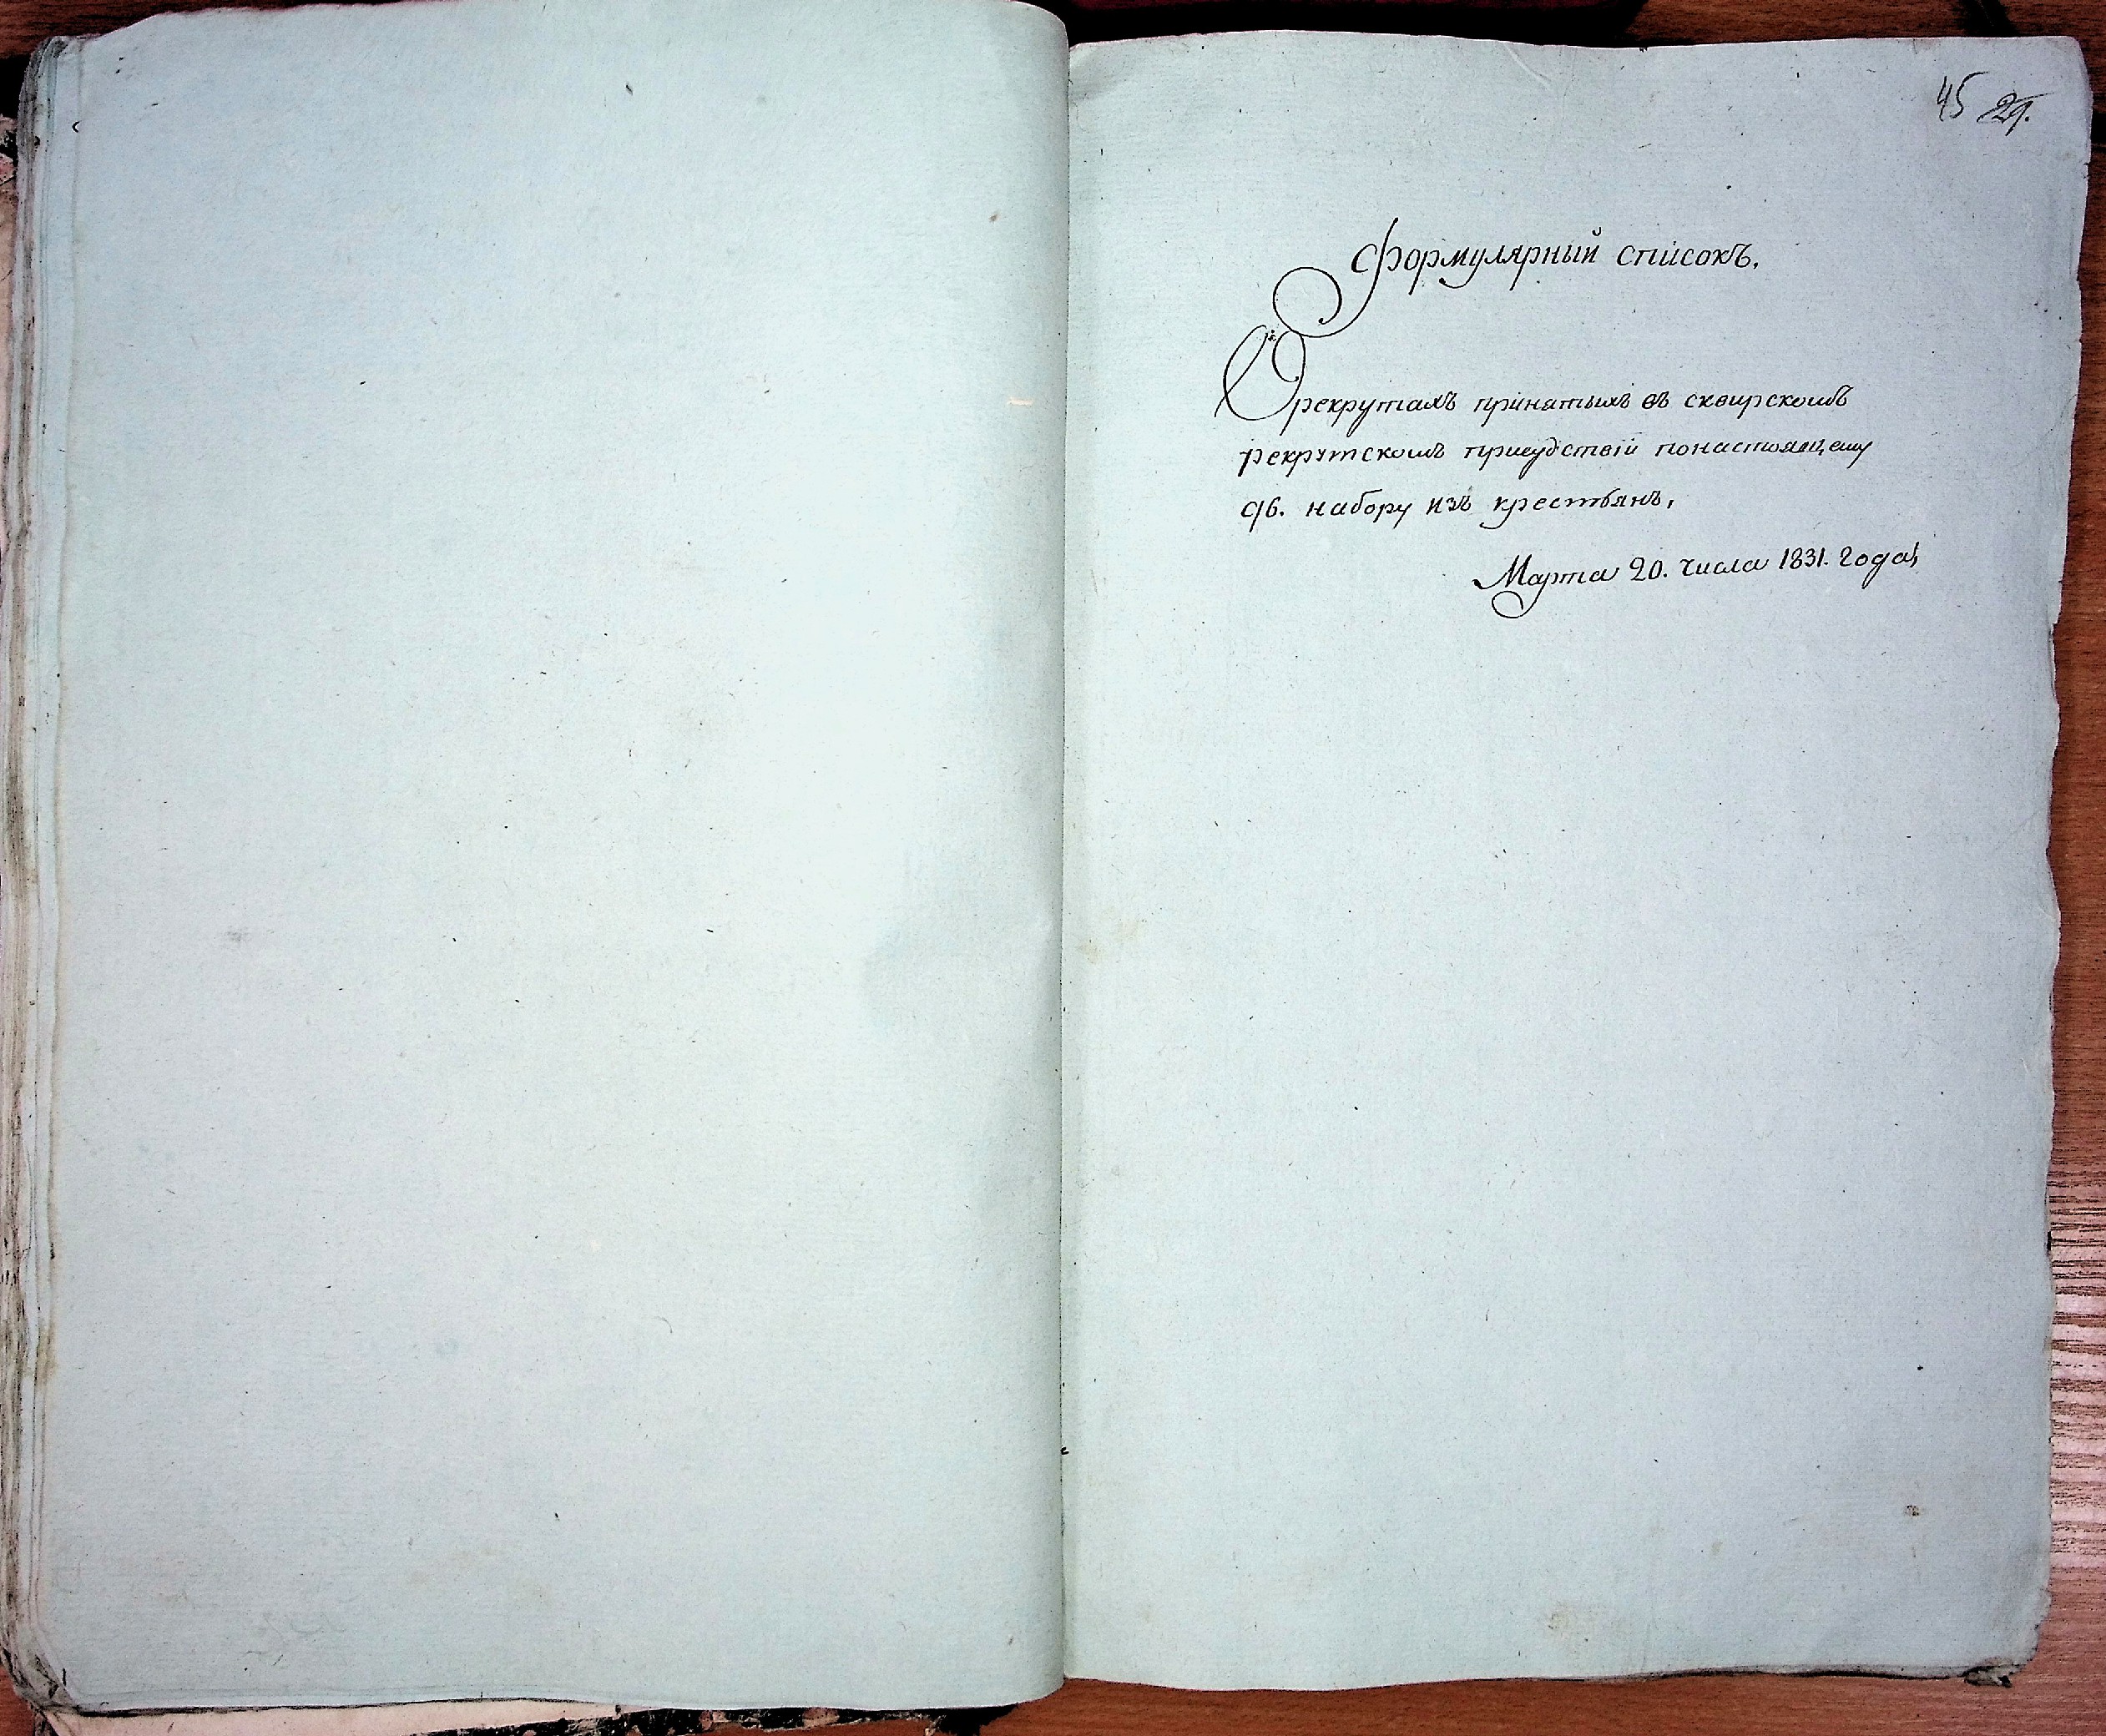 45 29.
Формулярный списокъ,
О рекрутахъ принятыхъ въ сквирскомъ
рекрутскомъ присудствіи понастоящему
96. набору изъ крестьянъ,
Марта 20. числа 1831. года,